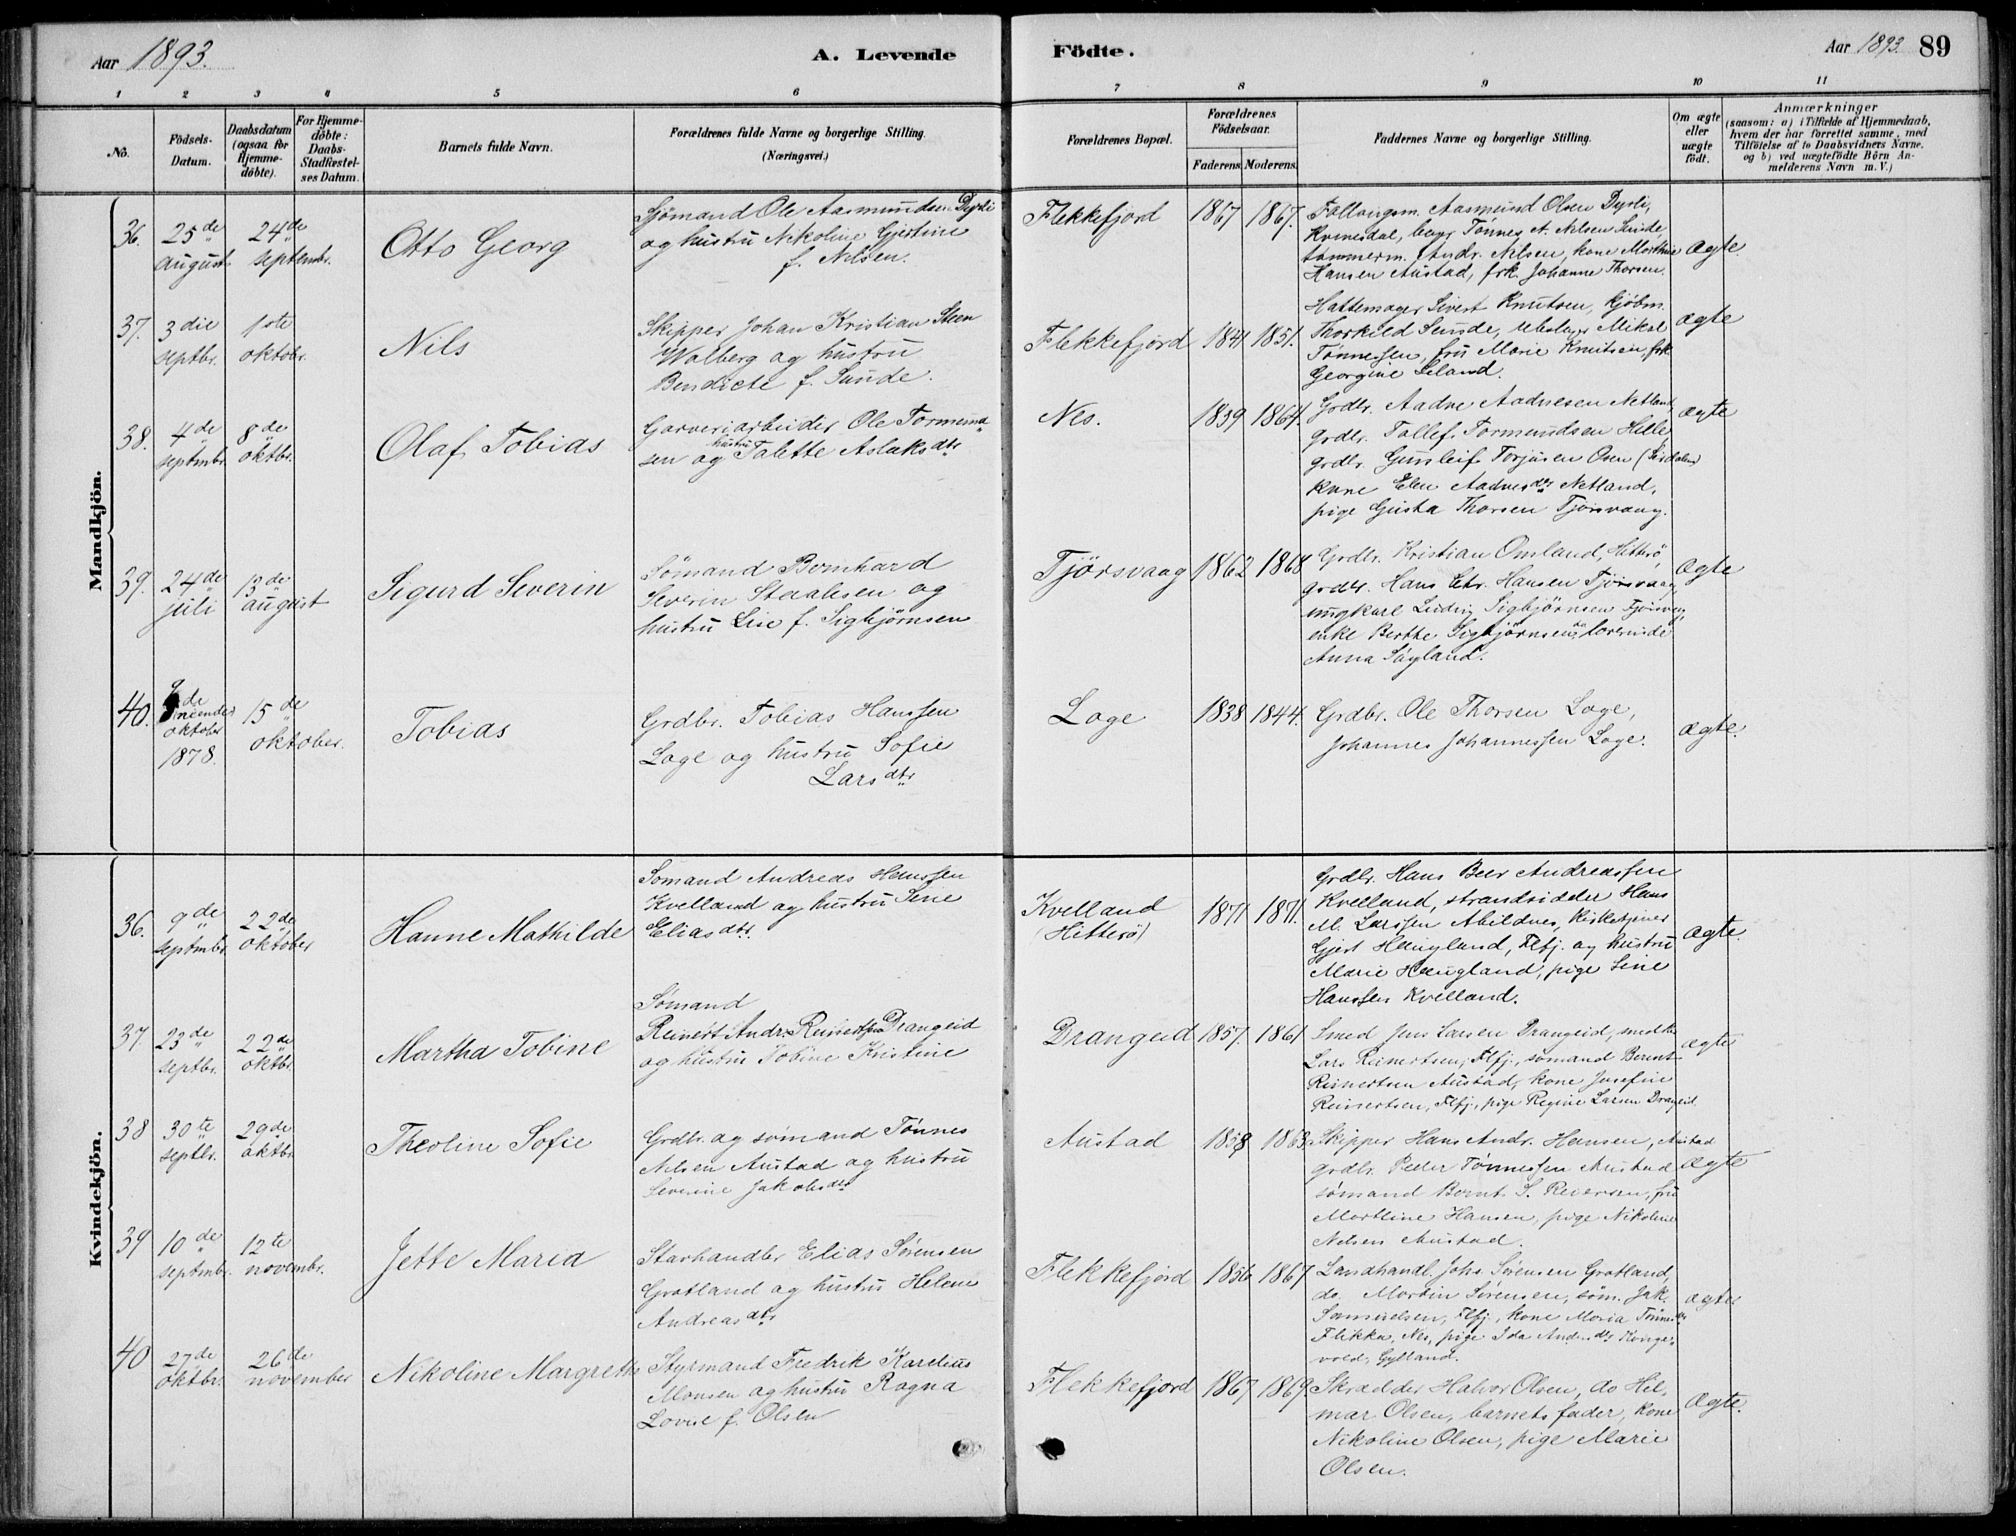 Aar 1893.
A. Levende
Födte.
Aar 1893. 89
1 2 3 4 5 6 7 8 9 10 11
No.
Födsels-
Datum.
Daabsdatum
(ogsaa for
Hjemme-
döbte).
For Hjemme-
döbte:
Daabs-
Stadfæstel-
ses Datum.
Barnets fulde Navn.
Forældrenes fulde Navne og borgerlige Stilling.
(Næringsvei.)
Forældrenes Bopæl.
Forældrenes
Födselsaar.
Faderens. Moderens.
Faddernes Navne og borgerlige Stilling.
Om ægte
eller
uægte
födt.
Anmærkninger
(saasom: a) i Tilfælde af Hjemmedaab,
hvem der har forrettet samme, med
Tilföielse af to Daabsvidners Navne,
og b) ved uægtefödte Börn An-
melderens Navn m. V.)
Mandkjön.
36.
25de
august
24de
septembr.
Otto Georg
Sjömand Ole Aasmundsen Dyrli
og hustru Nikoline Gjertine
f. Nilsen.
Flekkefjord
1867
1867.
Aasmund Olsen Dyrli,
Kvinesdal, Tønnes N. Nilsen Sunde,
tømmerm. Andr. Nilsen, kone Marthine
Hansen Austad, frk. Johanne Thorsen.
ægte.
37.
3die
septbr.
1ste
oktobr.
Nils
Skipper Johan Kristian Steen
Walberg og hustru
Bendicte f. Sunde.
Flekkefjord
1841
1851.
Hattemager Sivert Knutsen, kjøbm.
Thorkild Sunde, Mikal
Tønnessen, fru Marie Knutsen, frk
Georgine Seland.
ægte
38.
4de
septmbr.
8de
oktbr.
Olaf Tobias
Garveriarbeider Ole Tormund-
sen og hustru Talette Aslaksdtr
Nes.
1839
1864.
Grdbr. Aadne Aadnesen Netland,
grdbr. Tollef Tormundsen Helle,
grdbr. Gunleif Torjusen Osen (Sirdalen)
kone Elen Aadnesdtr Netland,
pige Gusta Thorsen Tjørsvaag.
ægte
39.
24de
juli
13de
august
Sigurd Severin
Sömand Bernhard
Severin Staalesen og
hustru Lise f. Sigbjørnsen
Tjørsvaag
1862
1868
Grdbr. Kristian Omland, Hitterö,
grdbr. Hans Chr. Hansen Tjørsvaag,
ungkarl Ludvig Sigbjørnsen Tjørsvaag,
enke Berthe Sigbjørnsen,
Anna Søyland.
ægte
40.
9de
oktober
1878.
15de
oktober.
Tobias
Grdbr. Tobias Hanssen
Loge og hustru Sofie
Larsdtr
Loge
1838
1844.
Grdbr. Ole Thorsen Loge,
Johannes Johannessen Loge.
ægte.
Kvindekjön.
36.
9de
septmbr.
22de
oktober
Hanne Mathilde
Sömand Andreas Hanssen
Kvelland og hustru Sine
Eliasdtr.
Kvelland
(Hitterö)
1871
1871.
Grdbr. Hans Beer Andreassen
Kvelland, strandsidder Hans
M. Larssen Abildnes, kirketjener
Gjert Haugland, Flfj. og hustru
Marie Haugland, pige Sine
Hanssen Kvelland.
ægte.
37
23de
septbr.
22de
oktbr.
Martha Tobine
Sömand
Reinert Andr. Reinertsen Drangeid
og hustru Tobine Kristine
Drangeid
1857.
1861
Smed Jens Larsen Drangeid,
Lars Reinertsen, Flfj., sömand Bernt
Reinertsen Austad, kone Josefine
Reinertsen, Flfj., pige Regine Larsen Drangeid
ægte
38
30te
septbr.
29de
oktbr.
Theoline Sofie
Grdbr. og sømand Tønnes
Nilsen Austad og hustru
Severine Jakobsdtr
Austad
1858
1863.
Skipper Hans Andr. Hansen, Austad
grdbr. Peder Tønnessen Austad
sømand Bernt S. Reiersen, fru
Marthine Hansen, pige Nikoline
Nilsen Austad.
ægte
39
10de
septmbr.
12te
novembr.
Jette Maria
Elias Sørensen
Grotland og hustru Helene
Andreasdtr
Flekkefjord
1856
1867
Landhandl. Johs. Sørensen Grotland,
do. Martin Sørensen, söm. Jak.
Samuelsen, Flfj., kone Maria Tønnesdtr
Flikka, Nes, pige Ida Andr.dtr Konge-
vold, Gylland.
ægte
40
27de
oktbr.
26de
november
Nikoline Margrethe
Styrmand Fredrik Karelius
Monsen og hustru Ragna
Lovise f. Olsen
Flekkefjord
1867
1869
Skrædder Halvor Olsen, do Hil-
mar Olsen, barnets fader, kone
Nikoline Olsen, pige Marie
Olsen.
ægte.